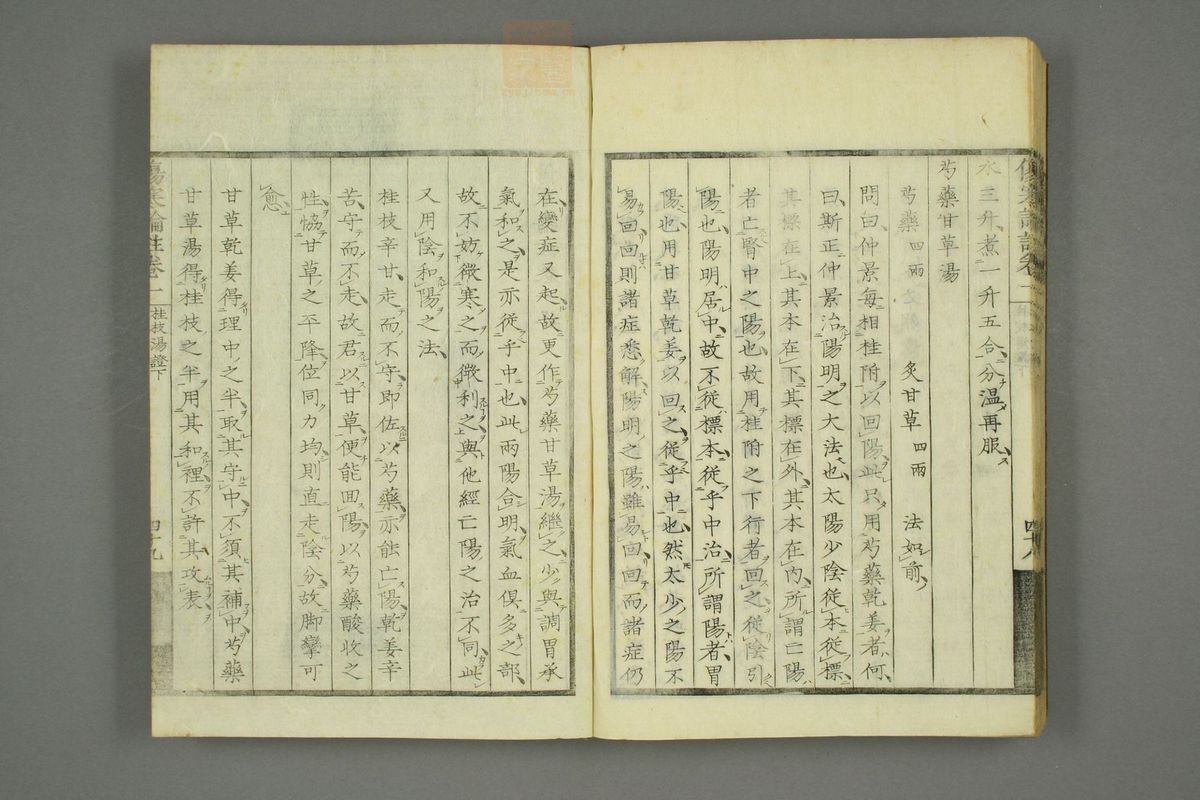 水三升煮一升五合分温再服
芍藥甘草湯
芍藥四兩 炙甘草四兩 法如前
問曰仲景每相桂附以回陽此只用芍藥乾姜者何
曰斯正仲景治陽明之大法也太陽少陰從本從標
其標在上其本在下其標在外其本在內所謂亡陽
者亡腎中之陽也故用桂附之下行者回之從陰引
陽也陽明居中故不從標本從乎中治所謂陽者胃
陽也用甘草乾姜以回之從乎中也然太少之陽不
易回回則諸症悉解陽明之陽雖易回回而諸症仍
四十八
在變症又起故更作芍藥甘草湯繼之少與調胃承
氣和之是亦從乎中也此兩陽合明氣血俱多之部
故不妨微寒之而微利之與他經亡陽之治不同此
又用陰和陽之法
桂枝辛甘走而不守即佐以芍藥亦能亡陽乾姜辛
苦守而不走故君以甘草便能回陽以芍藥酸收之
性恊甘草之平降位同力均則直走陰分故脚攣可
愈
甘草乾姜得理中之半取其守中不須其補中芍藥
甘草湯得桂枝之半用其和裡不許其攻表
傷寒論註卷一 桂枝湯證下 四十九